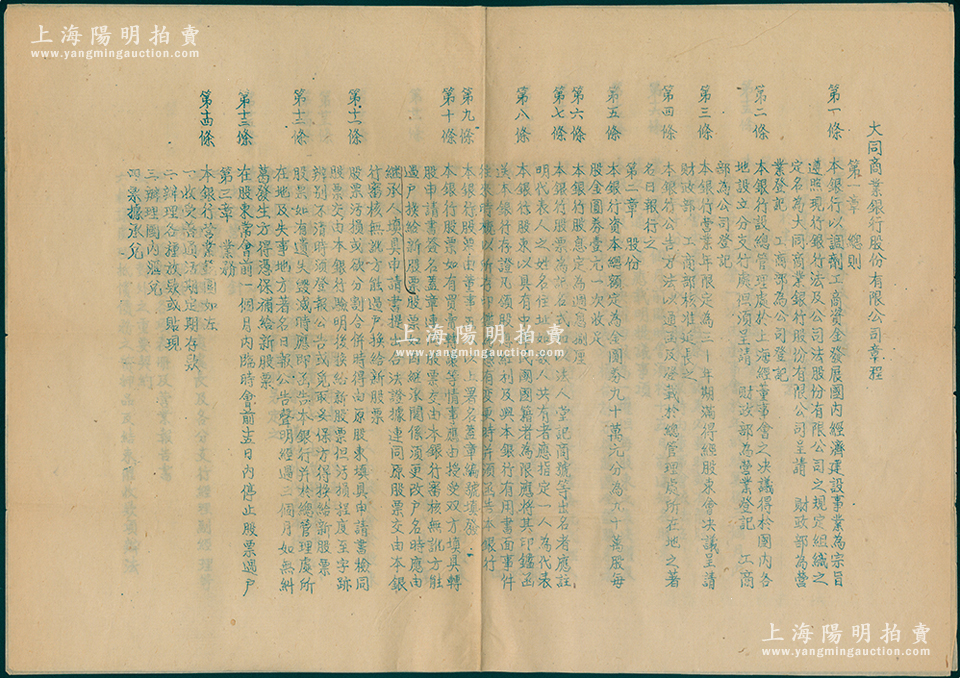 大同商業銀行股份有限公司章程
第一章　總則
第一條　本銀行以調劑工商資金發展國內經濟建設事業為宗旨
遵照現行銀行法及公司法股份有限公司之規定組織之
定名為大同商業銀行股份有限公司呈請　財政部為營
業登記　工商部為公司登記
第二條　本銀行設總管理處於上海經董事會之決議得於國內各
地設立分支行處但須呈請　財政部為營業登記　工商
部為公司登記
第三條　本銀行營業年限定為三十年期滿得經股東會決議呈請
財政部　工商部核准延長之
第四條　本銀行公告方法以通函及登載於總管理處所在地之著
名日報行之
第二章　股份
第五條　本銀行資本總額定為金圓券九十萬元分為九十萬股每
股金圓券壹元一次收足
第六條　本銀行股息定為週息
第七條　本銀行股票為記名式如以法人堂記商號等出名者應註
明代表人之姓名住址如數人共有者應指定一人為代表
第八條　本銀行股東以具有中華民國國籍者為限應將其印鑑函
送本銀行存證凡領股息紅利及與本銀行有用書面事件
時並須函告本銀行
第九條　本銀行股票由董事五人以上署名蓋章編號填發
第十條　本銀行股票如有買賣轉讓等情事應由授受双方填具轉
股申請書簽名蓋章連同股票交由本銀行審核無訛方能
過戶換給新股票
繼承人填具申請書提出合法證據連同原股票交由本銀
行審核無訛方能過戶換給新股票
第十一條　股票污損或破分割合併時得由原股東填具申請書檢同
股票交由本銀行驗明後換給新股票但污損程度至字跡
辨別不清時須登報公告或覓取妥保方得換給新股票
第十二條　股票如有遺失燬滅時應即函告本銀行并於總管理處所
在地及失事地方著名日報公告聲明經過三個月如無糾
葛發生方得憑保補給新股票
第十三條　在股東常會前一個月內臨時會前十五日內停止股票過戶
第三章　業務
第十四條　本銀行營業範圍如左
一、收受普通活期定期存款
二、辦理各種放款或貼現
三、辦理國內滙兌
四、票據承兌
上海陽明拍賣
www.yangmingauction.com
上海陽明拍賣
www.yangmingauction.com
上海陽明拍賣
www.yangmingauction.com